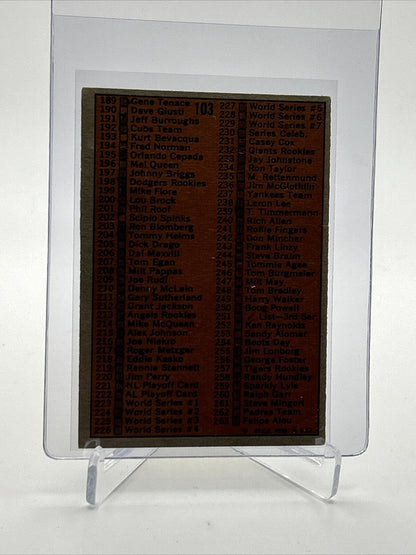 103
189 Gene Tenace
190 Dave Giusti
191 Jeff Burroughs
192 Cubs Team
193 Kurt Bevacqua
194 Fred Norman
195 Orlando Cepeda
196 Mel Queen
197 Johnny Briggs
198 Dodgers Rookies
199 Mike Fiore
200 Lou Brock
201 Phil Roof
202 Scipio Spinks
203 Ron Blomberg
204 Tommy Helms
205 Dick Drago
206 Dal Maxvill
207 Tom Egan
208 Milt Pappas
209 Joe Rudi
210 Denny McLain
211 Gary Sutherland
212 Grant Jackson
213 Angels Rookies
214 Mike McQueen
215 Alex Johnson
216 Joe Niekro
217 Roger Metzger
218 Eddie Kasko
219 Rennie Stennett
220 Jim Perry
221 NL Playoff Card
222 AL Playoff Card
223 World Series #1
224 World Series #2
225 World Series #3
226 World Series #4
227 World Series #5
228 World Series #6
229 World Series #7
230 Series Celeb.
231 Casey Cox
232 Giants Rookies
233 Jay Johnstone
234 Ron Taylor
235 M. Rettenmund
236 Jim McGlothlin
237 Yankees Team
238 Leron Lee
239 T. Timmermann
240 Rich Allen
241 Rollie Fingers
242 Don Mincher
243 Frank Linzy
244 Steve Braun
245 Tommie Agee
246 Tom Burgmeier
247 Milt May
248 Tom Bradley
249 Harry Walker
250 Boog Powell
251 List—3rd Ser.
252 Ken Reynolds
253 Sandy Alomar
254 Boots Day
255 Jim Lonborg
256 George Foster
257 Tigers Rookies
258 Randy Hundley
259 Sparky Lyle
260 Ralph Garr
261 Steve Mingori
262 Padres Team
263 Felipe Alou